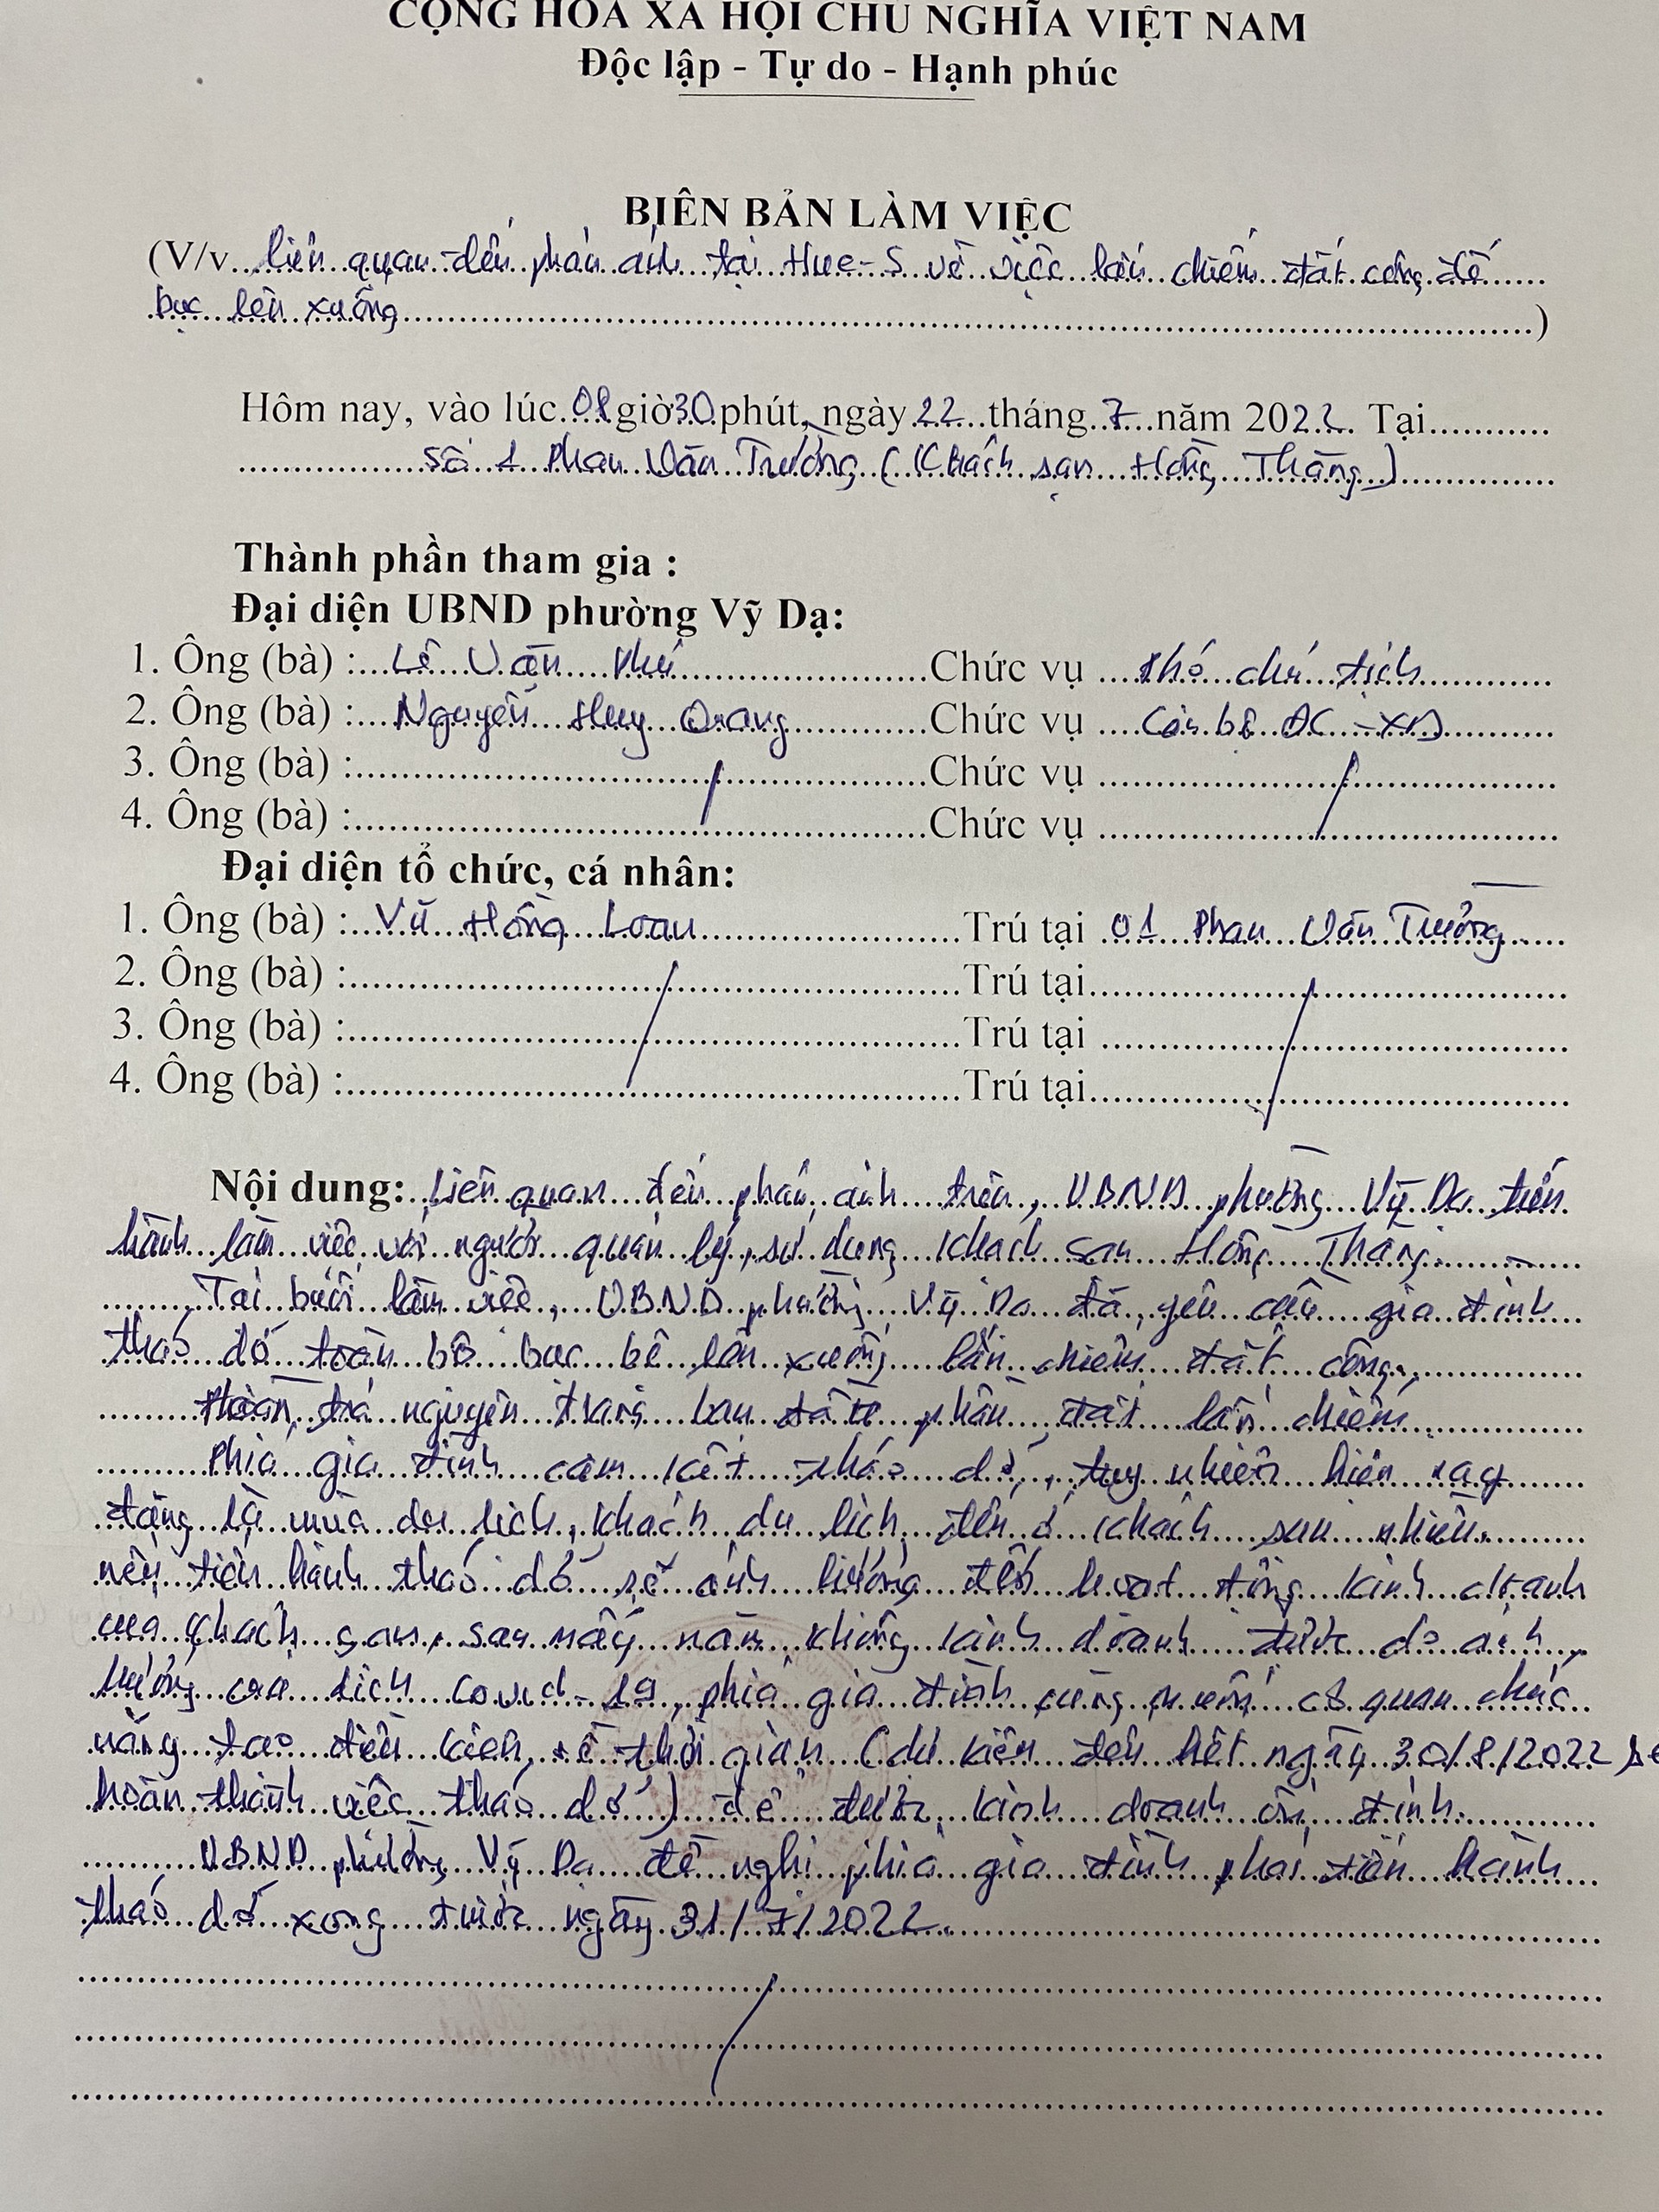 CỘNG HÒA XÃ HỘI CHỦ NGHĨA VIỆT NAM
Độc lập - Tự do - Hạnh phúc
BIÊN BẢN LÀM VIỆC
(V/v...liên quan đến phản ánh tại Hue-S về việc lấn chiếm đất công để
bục lên xuống...)
Hôm nay, vào lúc 08 giờ 30 phút, ngày 22 tháng 7 năm 2022. Tại...
Số 1 Phan Văn Trường (Khách sạn Hồng Thắng)
Thành phần tham gia :
Đại diện UBND phường Vỹ Dạ:
1. Ông (bà) : Lê Văn Phú Chức vụ Phó chủ tịch
2. Ông (bà) : Nguyễn Huy Quang Chức vụ Cán bộ ĐC - XD
3. Ông (bà) : Chức vụ
4. Ông (bà) : Chức vụ
Đại diện tổ chức, cá nhân:
1. Ông (bà) : Vũ Hồng Loan Trú tại 01 Phan Văn Trường
2. Ông (bà) : Trú tại
3. Ông (bà) : Trú tại
4. Ông (bà) : Trú tại
Nội dung: Liên quan đến phản ánh trên, UBND phường Vỹ Dạ tiến
hành làm việc với người quản lý, sử dụng khách sạn Hồng Thắng.
Tại buổi làm việc, UBND phường Vỹ Dạ đã yêu cầu gia đình
tháo dỡ toàn bộ bục bệ lên xuống lấn chiếm đất công,
hoàn trả nguyên trạng ban đầu phần đất lấn chiếm.
Phía gia đình cam kết tháo dỡ, tuy nhiên hiện nay
đang là mùa du lịch, khách du lịch đến ở khách sạn nhiều
nên tiến hành tháo dỡ sẽ ảnh hưởng đến hoạt động kinh doanh
của khách sạn, sau mấy năm không kinh doanh được do ảnh
hưởng của dịch Covid-19, phía gia đình cũng muốn cơ quan chức
năng tạo điều kiện về thời gian (dự kiến đến hết ngày 30/8/2022 sẽ
hoàn thành việc tháo dỡ) để được kinh doanh ổn định.
UBND phường Vỹ Dạ đề nghị phía gia đình phải tiến hành
tháo dỡ xong trước ngày 31/7/2022.